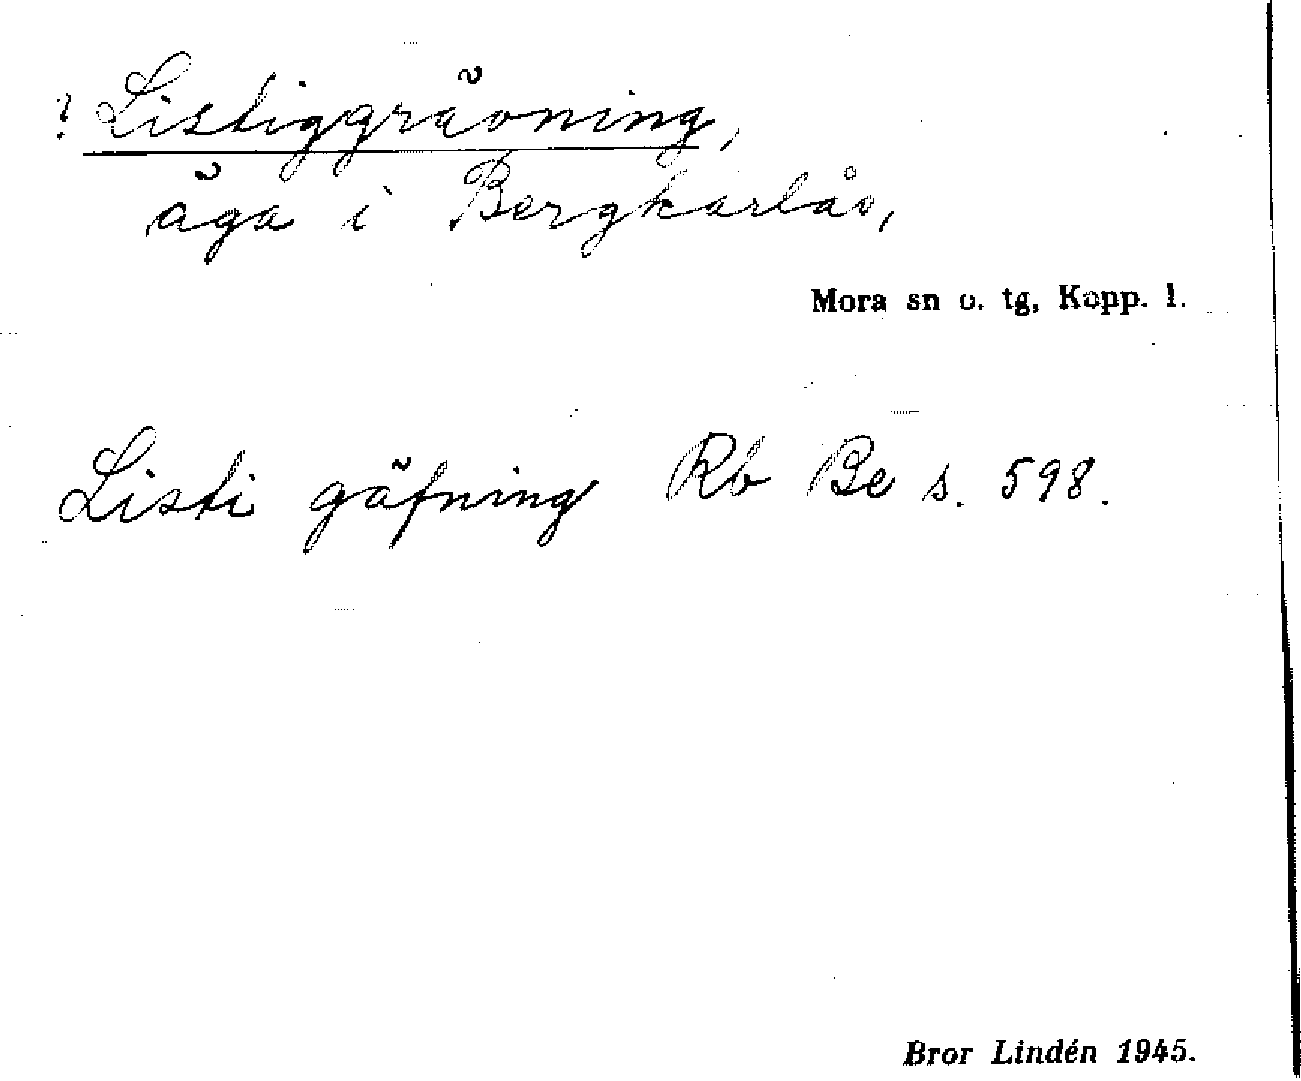 ? Listiggrävning,
äga i Bergkarlås,
Mora sn o. tg, Kopp. l.
Listi gäfning Rb Be s. 598.
Bror Lindén 1945.